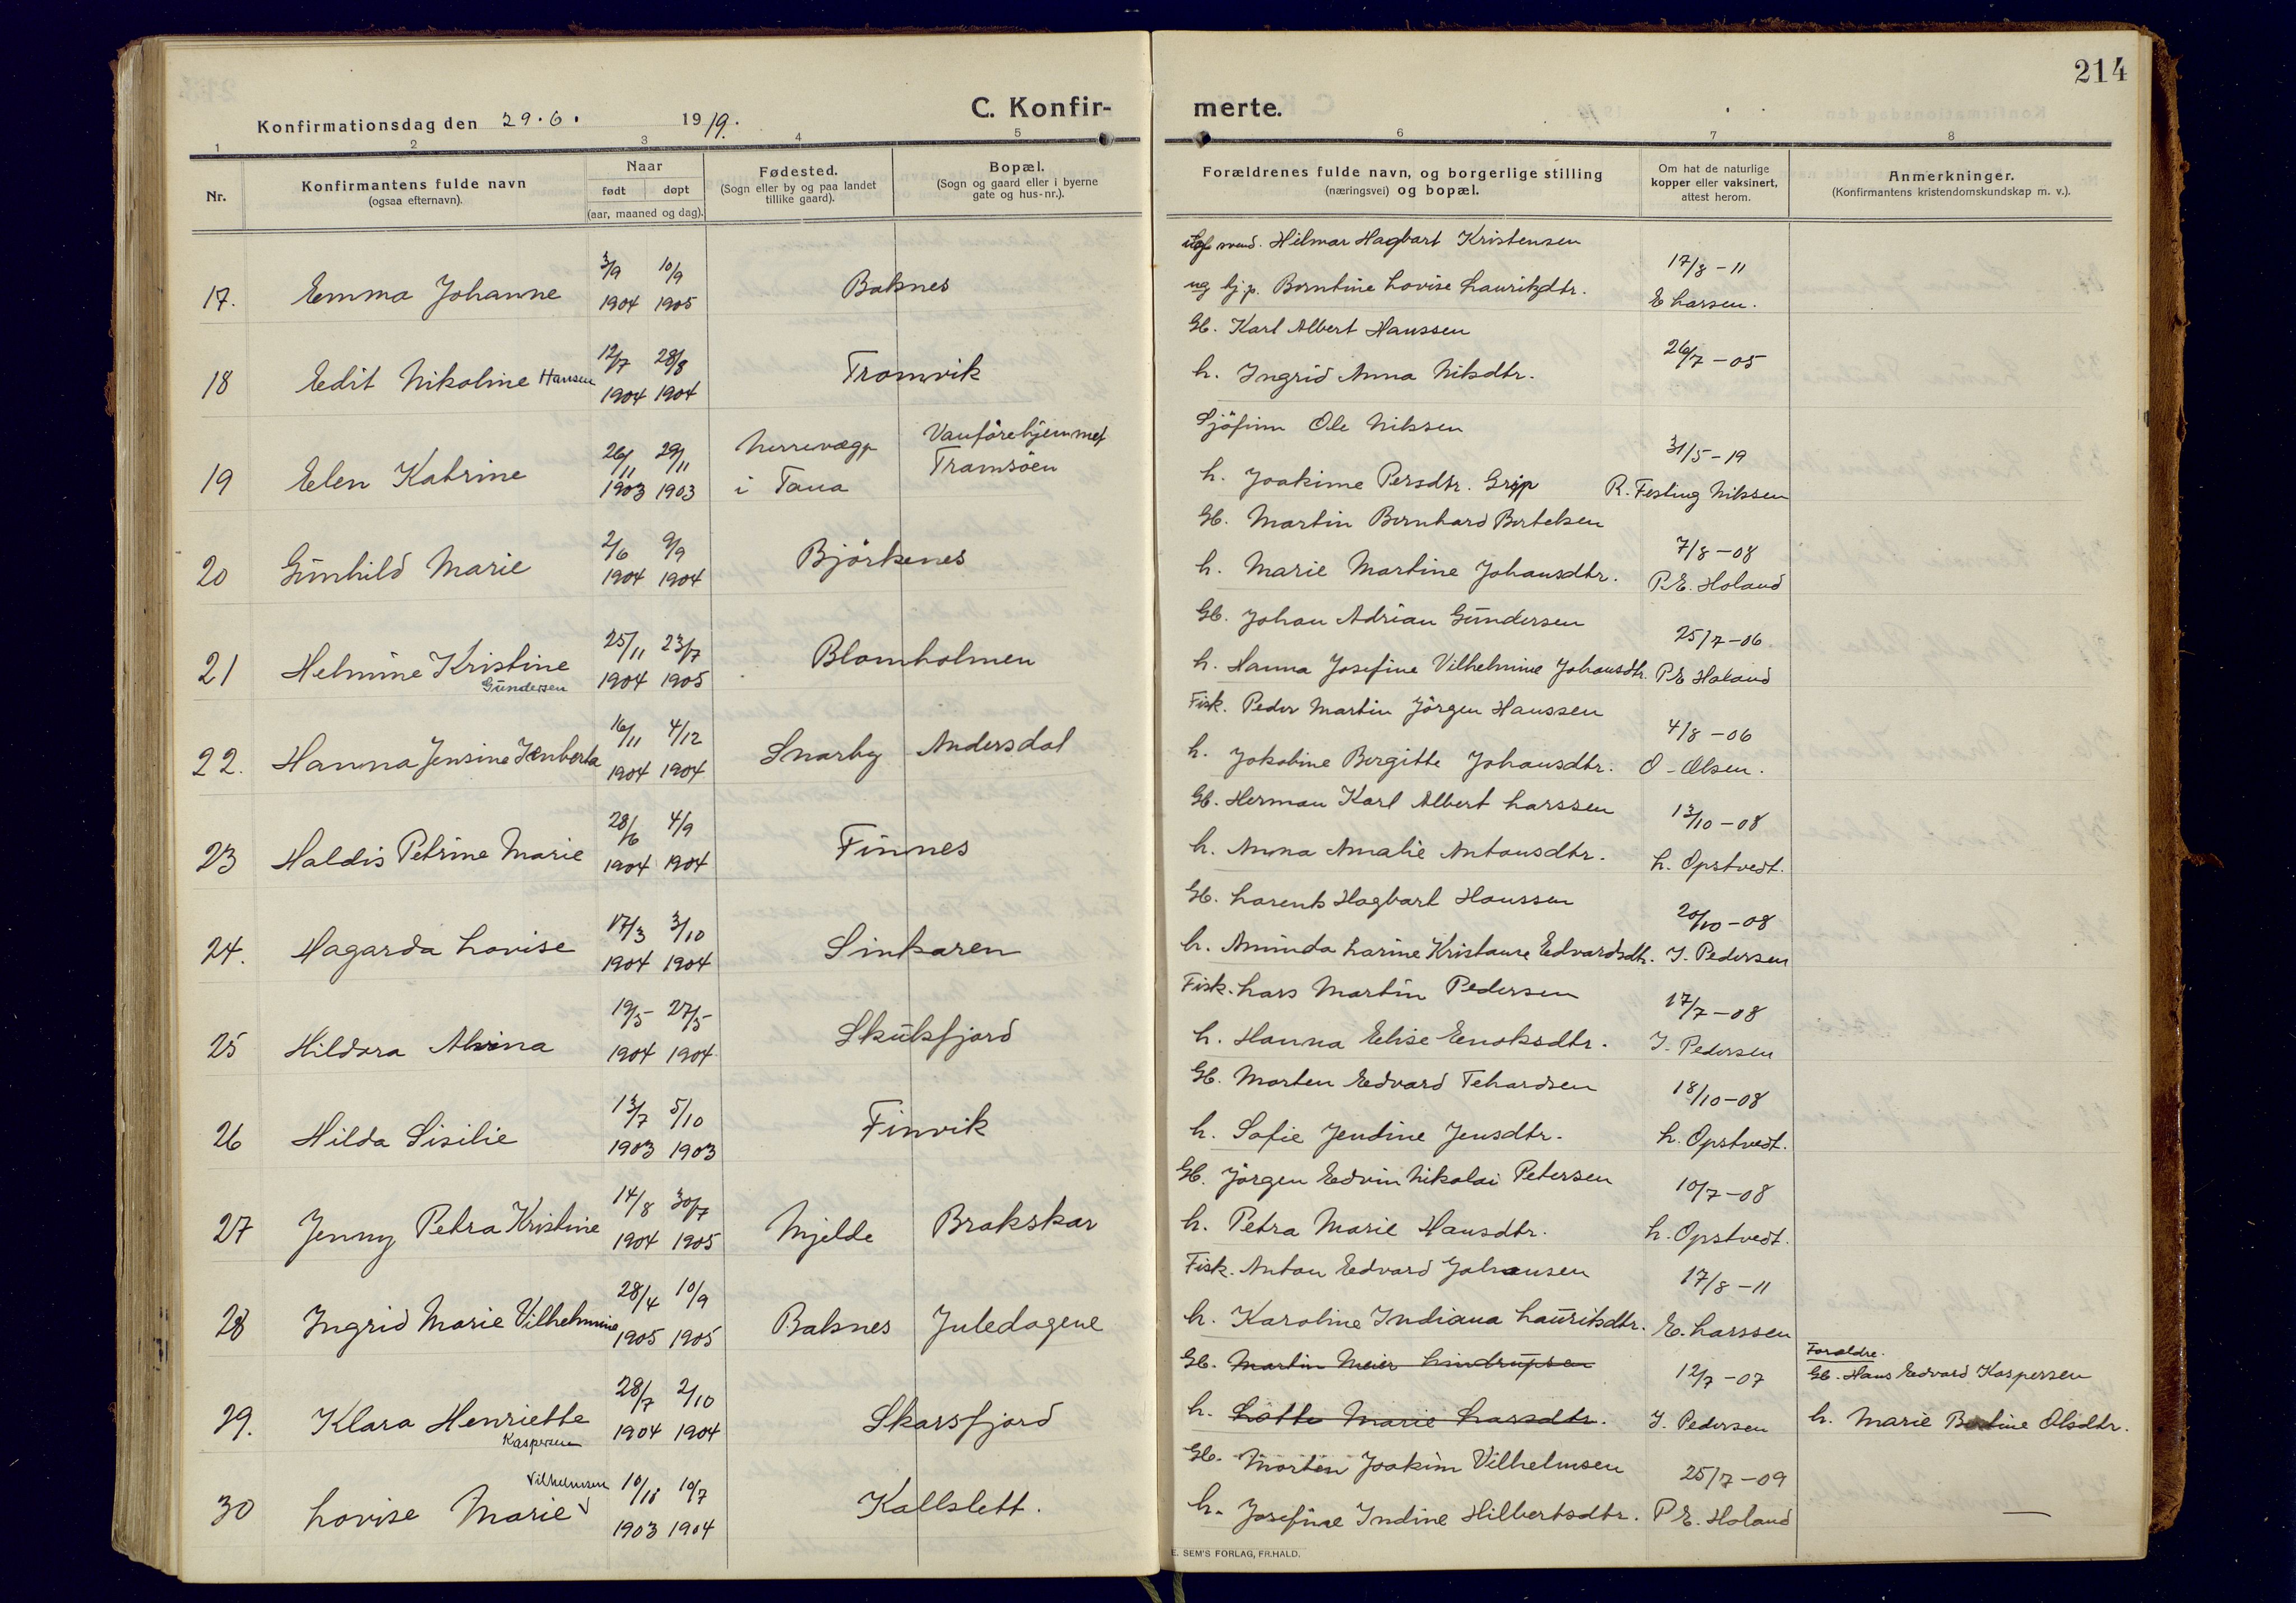 214
C. Konfir-
merte.
Konfirmationsdag den 29.6. 1919.
1 2 3 4 5 6 7 8
Nr.
Konfirmantens fulde navn
(ogsaa efternavn).
Naar
født døpt
(aar, maaned og dag).
Fødested.
(Sogn eller by og paa landet
tillike gaard).
Bopæl.
(Sogn og gaard eller i byerne
gate og hus-nr.).
Forældrenes fulde navn, og borgerlige stilling
(næringsvei) og bopæl.
Om hat de naturlige
kopper eller vaksinert,
attest herom.
Anmerkninger.
(Konfirmantens kristendomskundskap m. v.).
Hilmar Hagbart Kristensen
3/9 10/9 17/8-11
17. Emma Johanne 1904 1905 Baknes
Berntine Lovise Lauritsdtr. E Larsen.
Gb. Karl Albert Hanssen
12/7 28/8 26/7-05
18 Edit Nikoline Hansen 1904 1904 Tromvik
h. Ingrid Anna Nilsdtr.
Sjöfinn Ole Nilssen
26/11 29/11 31/5-19
19 Elen Katrine 1903 1903
i Tana
Vanförehjemmet
Tromsöen
h. Joakime Persdtr. Grip R. Festing Nilssen
Gb. Martin Bernhard Bertelsen
2/6 9/9 7/8-08
20 Gunhild Marie 1904 1904 Björkenes
h. Marie Martine Johansdtr. P.E. Holand
Gb. Johan Adrian Gundersen
25/11 23/7 25/7-06
21 Helmine Kristine Gundersen 1904 1905 Blomholmen
h. Hanna Josefine Vilhelmine Johansdtr. P.E Holand
Fisk. Peder Martin Jörgen Hanssen
16/11 4/12 4/8-06
22. Hanna Jensine 1904 1904 Snarby Andersdal
h. Jakobine Bergitte Johansdtr. O-Olsen.
Gb. Herman Karl Albert Larssen
28/6 4/9 13/10-08
23 Haldis Petrine Marie 1904 1904 Finnes
h. Anna Amalie Antonsdtr. h. Opstvedt.
Gb. Lorents Hagbart Hanssen
17/3 3/10 20/10-08
24. Hagarda Lovise 1904 1904 Sinkaren
h. Aminda Larine Kristaure Edvardsdtr. J. Pedersen
Fisk. Lars Martin Pedersen
19/5 27/5 17/7-08
25 Hildora Alvina 1904 1904 Skulsfjord
h. Hanna Elise Enoksdtr. J. Pedersen
Gb. Morten Edvard Tehardsen
13/7 5/10 18/10-08
26 Hilda Sisilie 1903 1903 Finvik
h. Sofie Jendine Jensdtr. h. Opstvedt.
Gb. Jörgen Edvin Nikolai Petersen
14/8 30/7 10/7-08
27 Jenny Petra Kristine 1904 1905 Mjelde Brakskar
h. Petra Marie Hansdtr. h. Opstvedt.
Fisk. Anton Edvard Johansen
28/4 10/9 17/8-11
28 Ingrid Marie Vilhelmine 1905 1905 Baknes Juledagene
h. Karoline Indiana Lauritsdtr. E. Larssen
Gb. Martin Meier Lindrupsen
28/7 2/10 12/7-07
Forældre.
Gb. Hans Edvard Kaspersen
29. Klara Henriette Kaspersen 1904 1904 Skarsfjord
h. Lotte Marie Larsdtr. J. Pedersen
h. Marie Bertine Olsdtr.
Gb. Morten Joakim Vilhelmsen
10/7 25/7-09
30 Lovise Marie Vilhelmsen 1903 1904 Kallslett.
h. Josefine Indine Hilbertsdtr. P.E. Holand —
E. SEM'S FORLAG, FR.HALD.